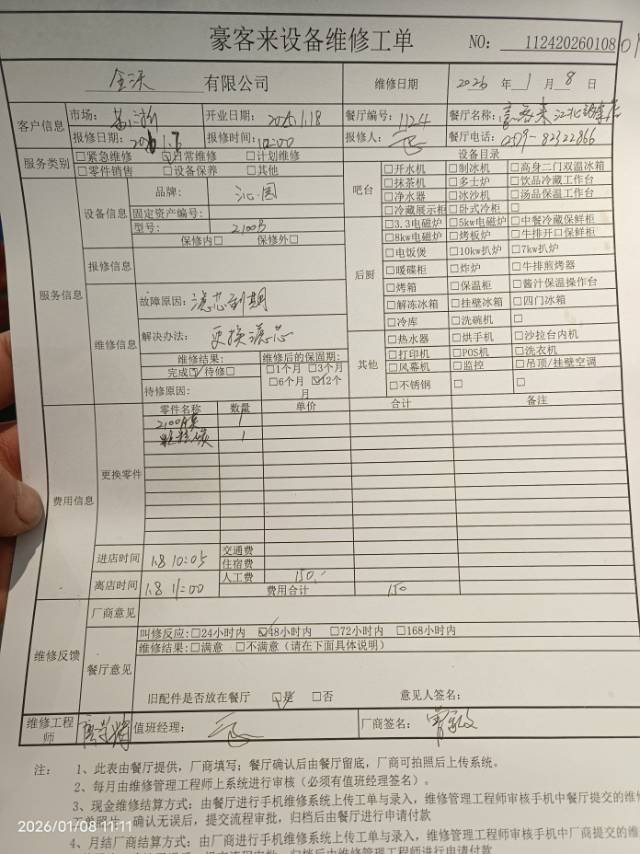 豪客来设备维修工单
NO: 11242026010801
有限公司 维修日期 2026 年 1 月 8 日
客户信息 市场: 开业日期: 餐厅编号: 1124 餐厅名称: 豪客来
报修日期: 报修时间: 报修人: 餐厅电话:
服务类别 □紧急维修 ☑日常维修 □计划维修 设备目录
□零件销售 □设备保养 □其他
服务信息
设备信息
品牌: 沁园
固定资产编号:
型号: 2100B
保修内□ 保修外□
报修信息
维修信息
故障原因: 滤芯到期
解决办法: 更换滤芯
维修结果: 维修后的保固期:
完成☑ 待修□ □1个月 □3个月
□6个月 ☑12个月
待修原因:
吧台
□开水机 □制冰机 □高身二门双温冰箱
□抹茶机 □多士炉 □饮品冷藏工作台
□净水器 □冰沙机 □汤品保温工作台
□冷藏展示柜 □卧式冷柜 □
后厨
□3.3电磁炉 □5kw电磁炉 □中餐冷藏保鲜柜
□8kw电磁炉 □烤板炉 □牛排开口保鲜柜
□电饭煲 □10kw扒炉 □7kw扒炉
□暖碟柜 □炸炉 □牛排煎烤器
□烤箱 □保温柜 □酱汁保温操作台
□解冻冰箱 □挂壁冰箱 □四门冰箱
□冷库 □洗碗机 □
其他
□热水器 □烘手机 □沙拉台内机
□打印机 □POS机 □洗衣机
□风幕机 □监控 □吊顶/挂壁空调
□不锈钢 □ □
费用信息
更换零件
零件名称 数量 单价 合计 备注
1
1
进店时间 1.8 10:05 交通费
住宿费
人工费 150.
离店时间 1.8 11:00 费用合计 150
维修反馈
厂商意见
餐厅意见
叫修反应:□24小时内 ☑48小时内 □72小时内 □168小时内
维修结果:□满意 □不满意（请在下面具体说明）
旧配件是否放在餐厅 ☑是 □否 意见人签名:
维修工程师 值班经理: 厂商签名:
注: 1、此表由餐厅提供，厂商填写；餐厅确认后由餐厅留底，厂商可拍照后上传系统。
2、每月由维修管理工程师上系统进行审核（必须有值班经理签名）。
3、现金维修结算方式：由餐厅进行手机维修系统上传工单与录入，维修管理工程师审核手机中餐厅提交的维
确认无误后，提交流程审批，归档后由餐厅进行申请付款
4、月结厂商结算方式：由厂商进行手机维修系统上传工单与录入，维修管理工程师审核手机中厂商提交的维
2026/01/08 11:11